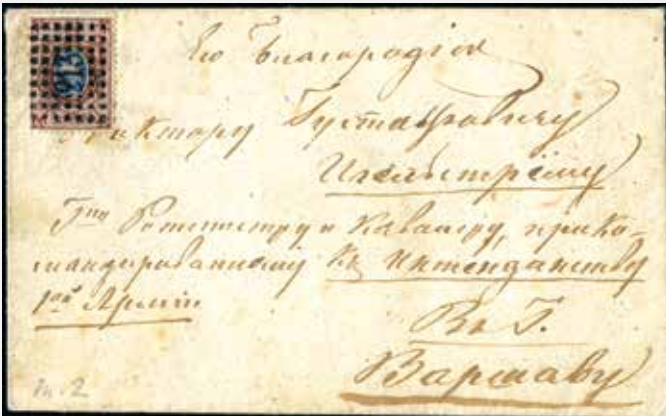 Его Благородію
Виктору Густафовичу
Игельстрёму
Гну Ротмистру и Кавалеру, прико-
мандированному къ Интенданству
1ой Арміи
Въ Г.
Варшаву